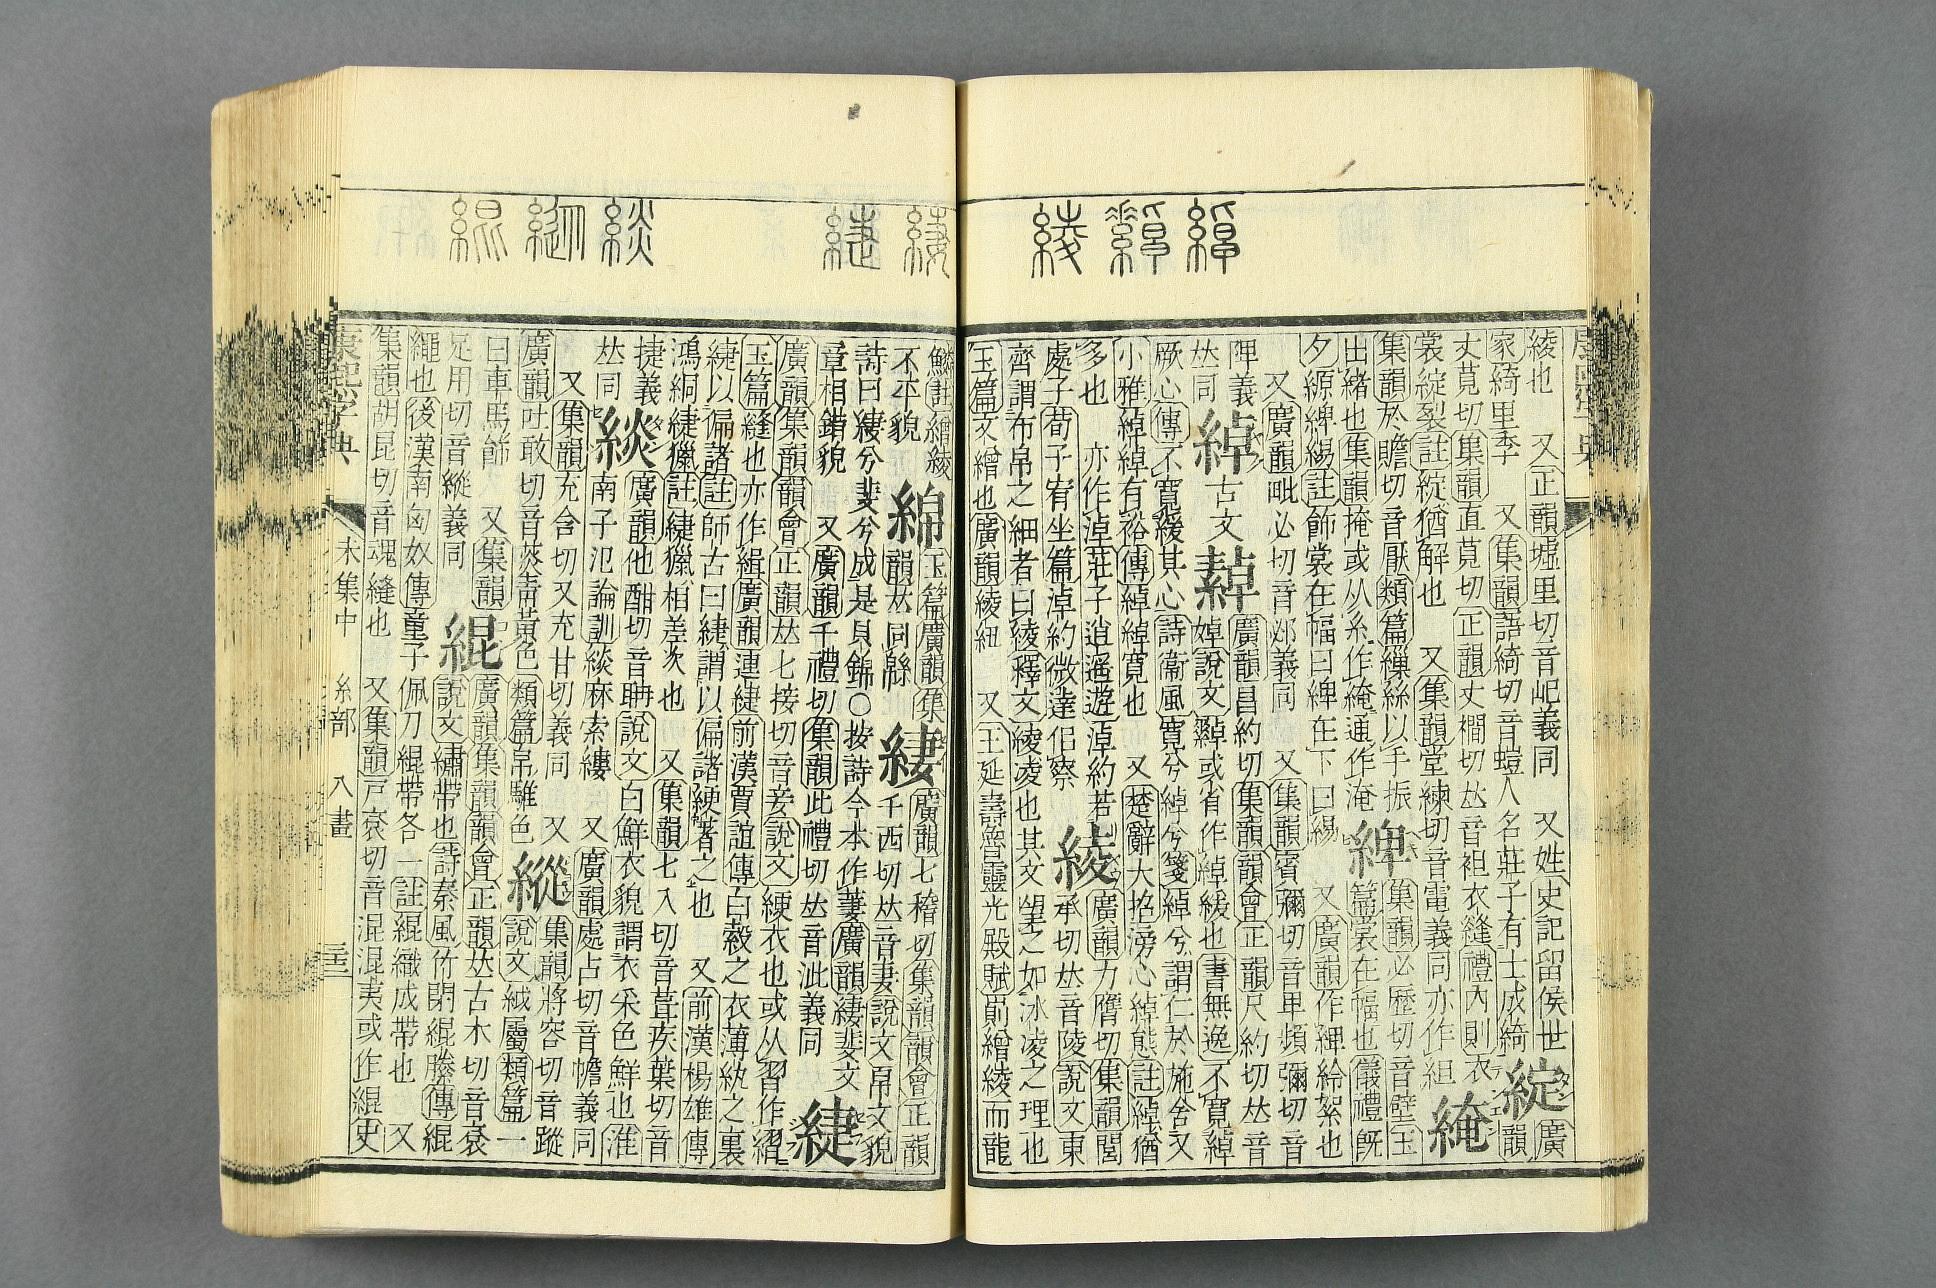 綾也　又正韻墟里切音屺義同　又姓史記留侯世
家綺里季　又集韻語綺切音螘人名莊子有士成綺
綻
廣
韻
丈莧切集韻直莧切正韻丈襉切𠀤音袒衣縫禮內則衣
裳綻裂註綻猶解也　又集韻堂練切音電義同亦作組
集韻於贍切音厭類篇繅絲以手振
出緒也集韻掩或从糸作　通作淹
綼
集韻必歷切音壁玉
篇裳在幅也儀禮旣
夕縓綼緆註飾裳在幅曰綼在下曰緆　又廣韻作　紷絮也
又廣韻毗必切音邲義同　又集韻賓彌切音卑頻彌切音
陴義
𠀤同
綽
古文
繛
廣韻昌約切集韻韻會正韻尺約切𠀤音
婥說文繛或省作綽緩也書無逸不寬綽
厥心傳不寬緩其心詩衞風寬兮綽兮箋綽兮謂仁於施舍又
小雅綽綽有裕傳綽綽寬也　又楚辭大招滂心綽態註綽猶
多也　亦作淖莊子逍遙遊淖約若
處子荀子宥坐篇淖約微達佀察
綾
廣韻力膺切集韻閭
承切𠀤音陵說文東
齊謂布帛之細者曰綾釋文綾凌也其文望之如冰凌之理也
玉篇文繒也廣韻綾紐　又王延壽魯靈光殿賦　繒綾而龍
鱗註繒綾
不平貌
綿
玉篇廣韻集
韻𠀤同緜
緀
廣韻七稽切集韻韻會正韻
千西切𠀤音妻說文帛文貌
詩曰緀兮斐兮成是貝錦○按詩今本作萋廣韻緀斐文
章相錯貌　又廣韻千禮切集韻此禮切𠀤音泚義同
緁
廣韻集韻韻會正韻𠀤七接切音妾說文緶衣也或从習作
玉篇縫也亦作緝廣韻連緁前漢賈誼傳白縠之衣薄紈之裏
緁以偏諸註師古曰緁謂以偏諸緶著之也　又前漢楊雄傳
鴻絧緁獵註緁獵相差次也　又集韻七入切音葺疾葉切音
捷義
𠀤同
緂
廣韻他酣切音聃說文白鮮衣貌謂衣采色鮮也淮
南子氾論訓緂麻索縷　又廣韻處占切音幨義同
又集韻充含切又充甘切義同　又
廣韻吐敢切音菼靑黃色類篇帛騅色
緃
集韻將容切音蹤
說文絨屬類篇一
曰車馬飾　又集韻
足用切音縱義同
緄
廣韻集韻韻會正韻𠀤古本切音袞
說文繡帶也詩秦風竹閉緄縢傳緄
繩也後漢南匈奴傳童子佩刀緄帶各一註緄織成帶也　又
集韻胡昆切音魂縫也　又集韻戸袞切音混混夷或作緄史
康熙字典
未集中　糸部　八畫